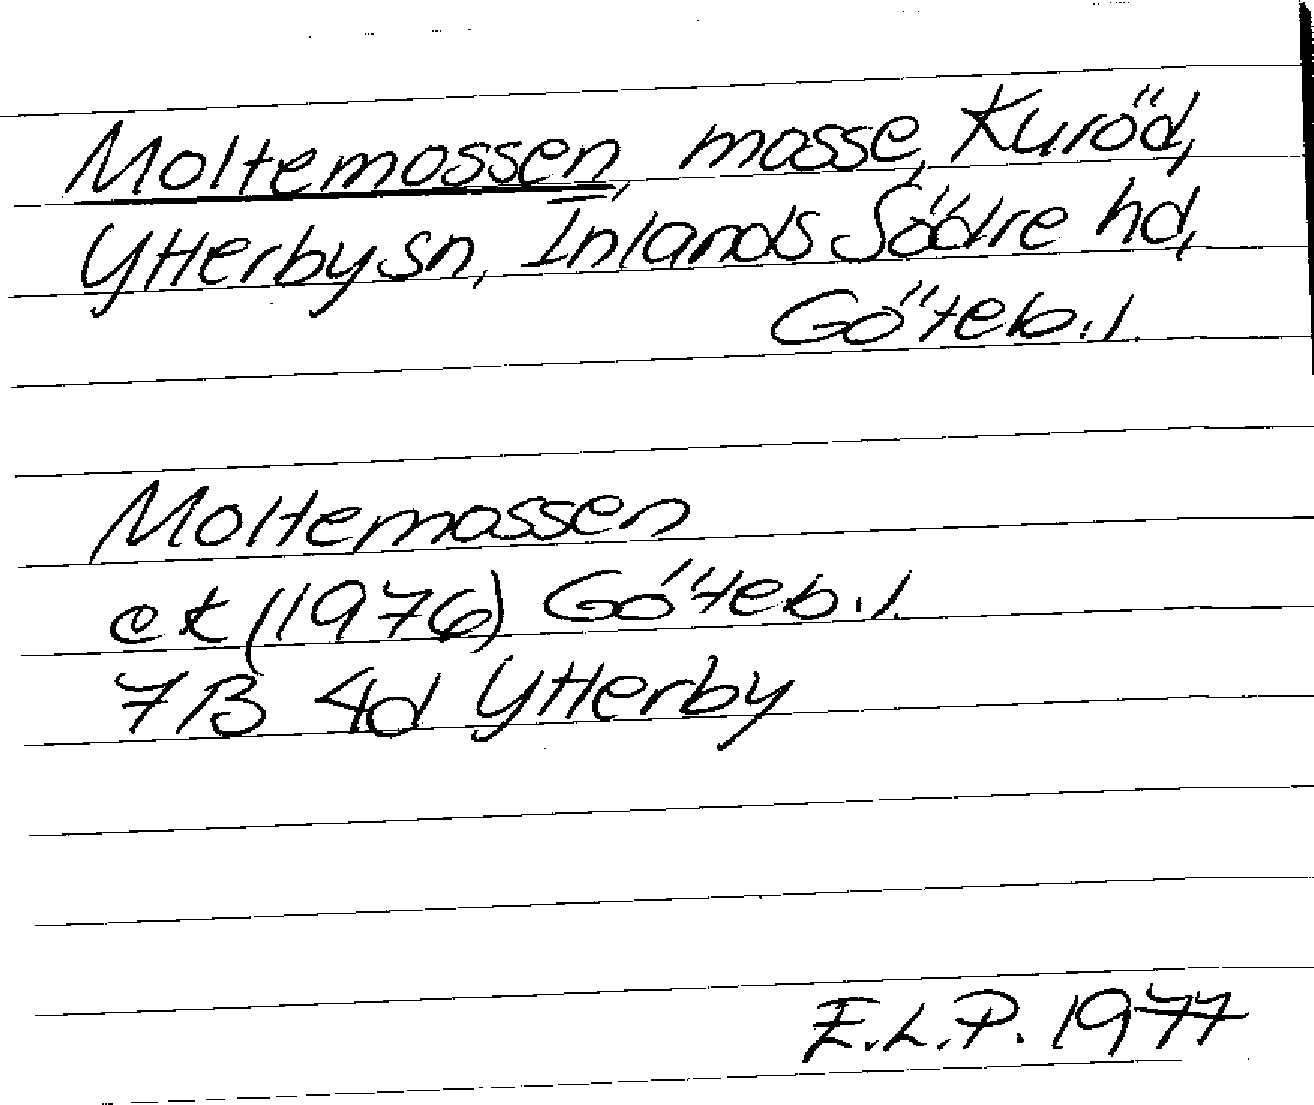 Moltemossen, mosse, Kuröd,
Ytterby sn, Inlands Södre hd,
Göteb. l.
Moltemossen
ek (1976) Göteb. l.
7B 4d Ytterby
E.L.P. 1977